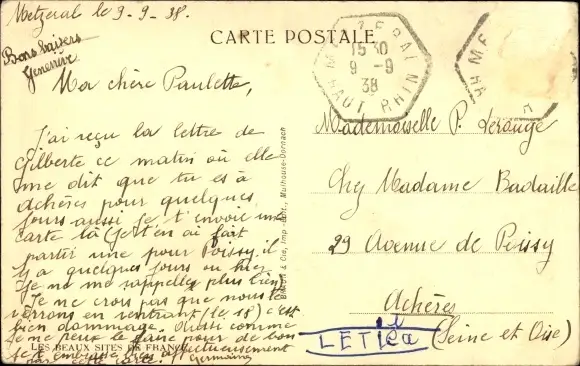 Metzeral le 9-9-38.
Bons baisers
Geneviève
CARTE POSTALE
METZERAL
1530
9-9
38
HAUT RHIN
Ma chère Paulette,
J'ai reçu la lettre de
Gilberte ce matin où elle
me dit que tu es à
Achères pour quelques
jours aussi je t'envoie une
carte là (et j'en ai fait
partir une pour Poissy il
y a quelques jours ou hier
je ne me rappelles plus bien)
Je ne crois pas que nous te
verrons en rentrant (le 18) c'est
bien dommage. Aussi comme
je ne peux le faire pour de bon
je t'embrasse bien affectueusement
par cette carte. Germaine
LES BEAUX SITES DE FRANCE
& Cie, Imp.-Édit., Mulhouse-Dornach
Mademoiselle P. Lerouge
Chez Madame Badaille
29 Avenue de Poissy
Achères
(Seine et Oise)